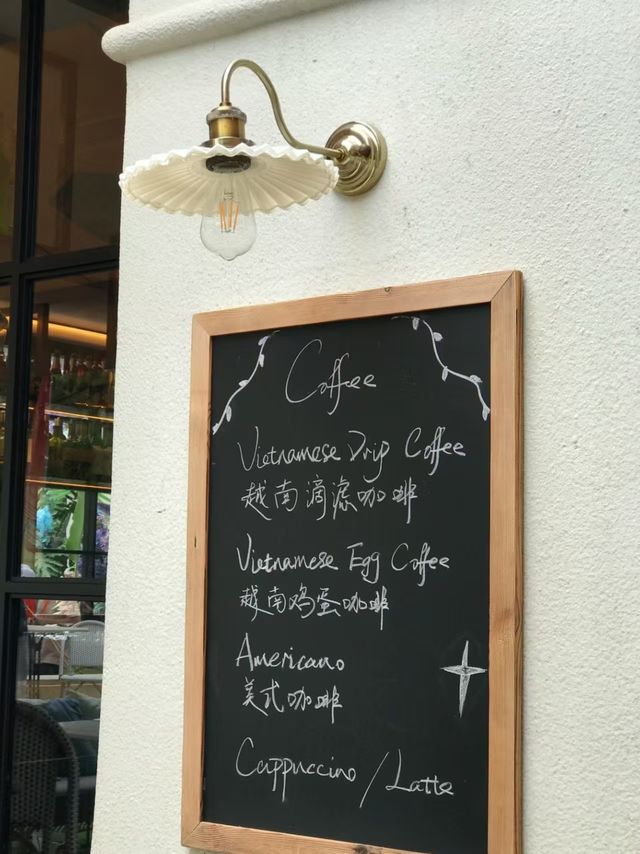 Coffee
Vietnamese Drip Coffee
越南滴滤咖啡
Vietnamese Egg Coffee
越南鸡蛋咖啡
Americano
美式咖啡
Cappuccino / Latte